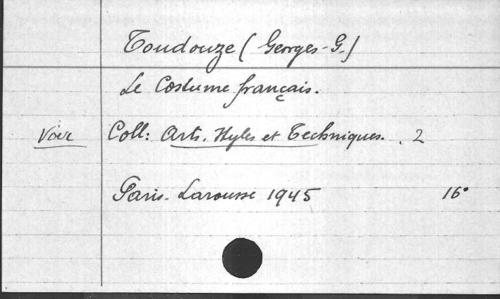 Toudouze (Georges-G.)
Le Costume français.
Voir Coll: Arts, Styles et Techniques. 2
Paris. Larousse 1945 16°